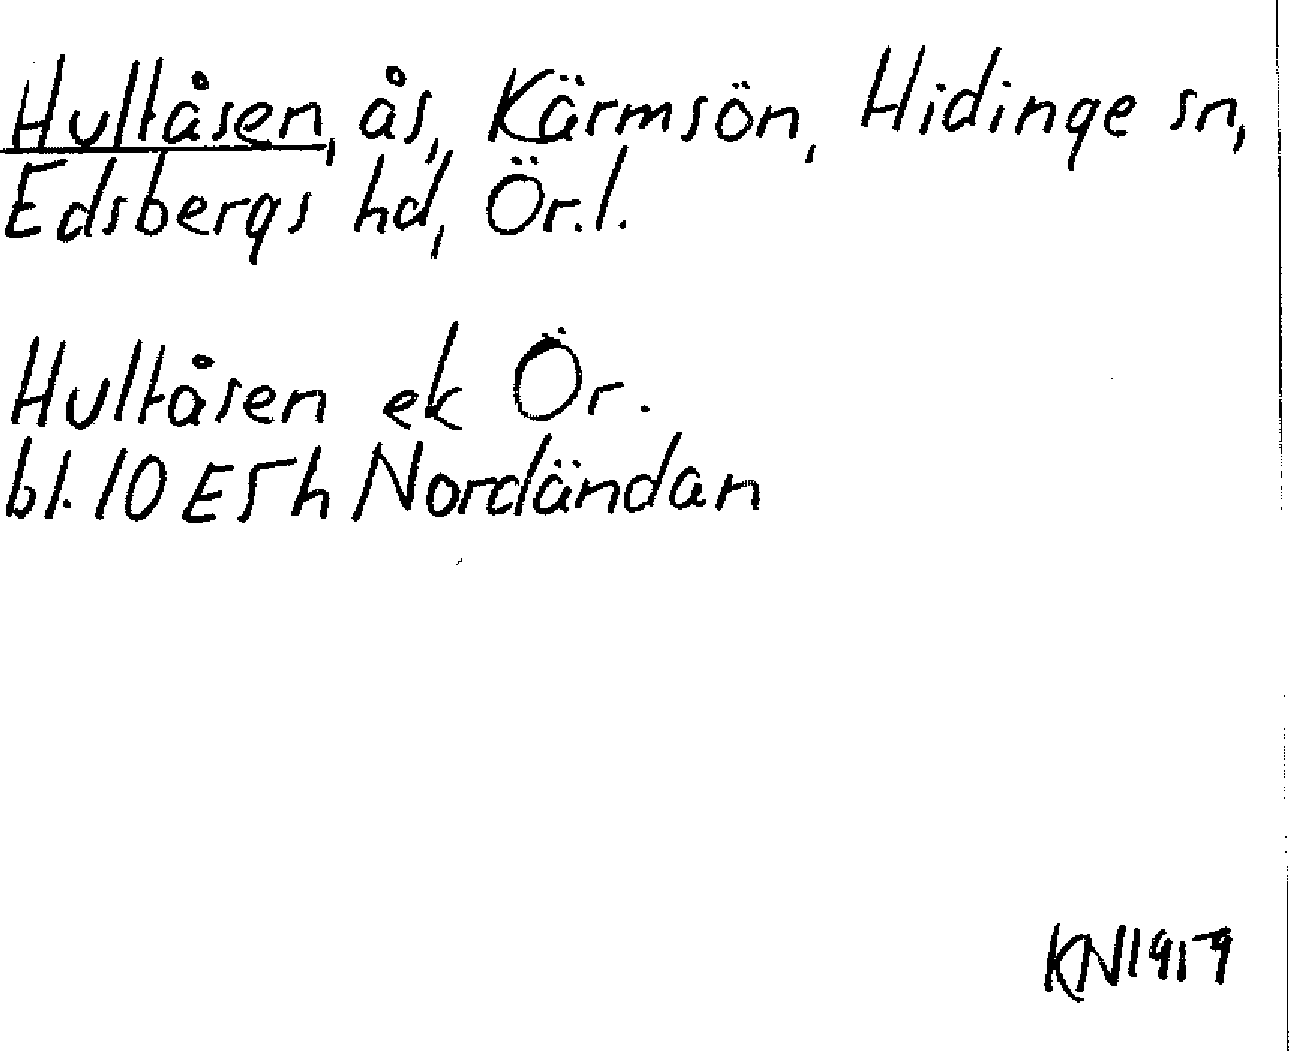 Hultåsen, ås, Kärmsön, Hidinge sn,
Edsbergs hd, Ör.l.
Hultåsen ek Ör.
bl. 10 E5h Nordändan